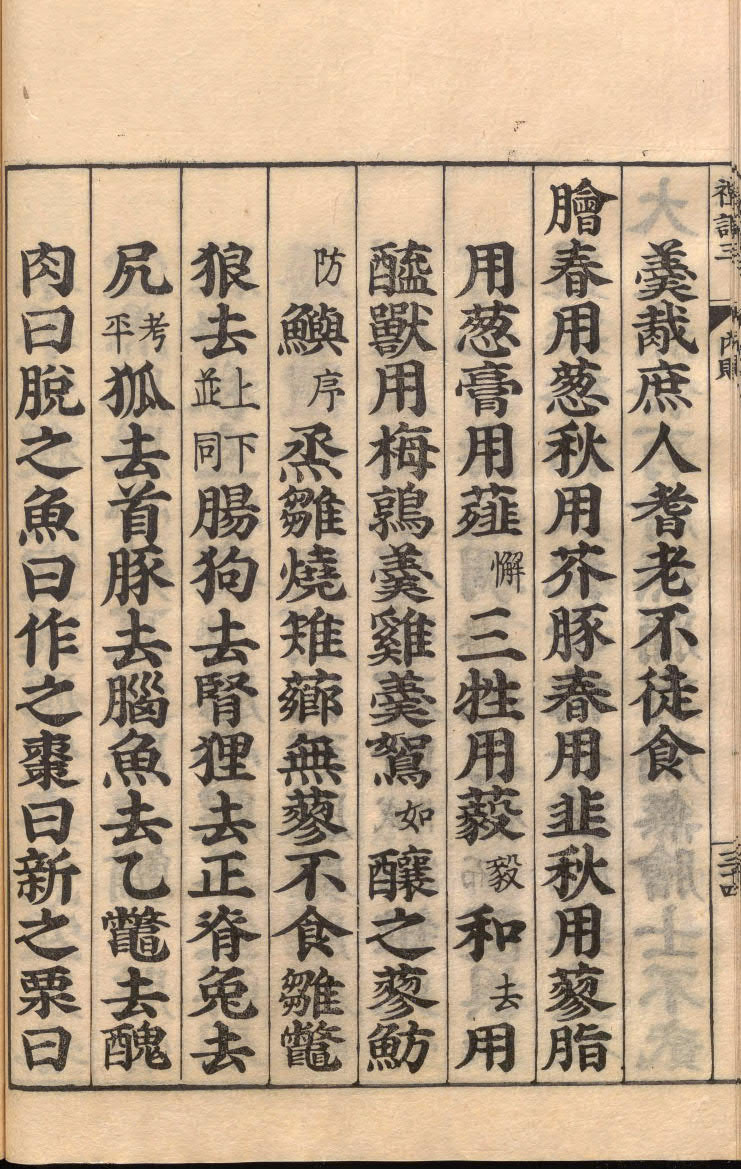 羹胾庶人耆老不徒食
膾春用葱秋用芥豚春用韭秋用蓼脂
用葱膏用薤懈三牲用藙毅和去用
醯獸用梅鶉羹雞羹鴽如釀之蓼魴
防鱮序烝雛燒雉薌無蓼不食雛鼈
狼去上下並同腸狗去腎狸去正脊兔去
尻考平狐去首豚去腦魚去乙鼈去醜
肉曰脫之魚曰作之棗曰新之栗曰